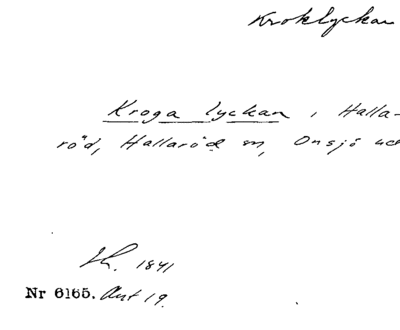 Kroklyckan
Kroga lyckan i Halla-
röd, Hallaröd sn, Onsjö
1841
Nr 6165. Ant 19.